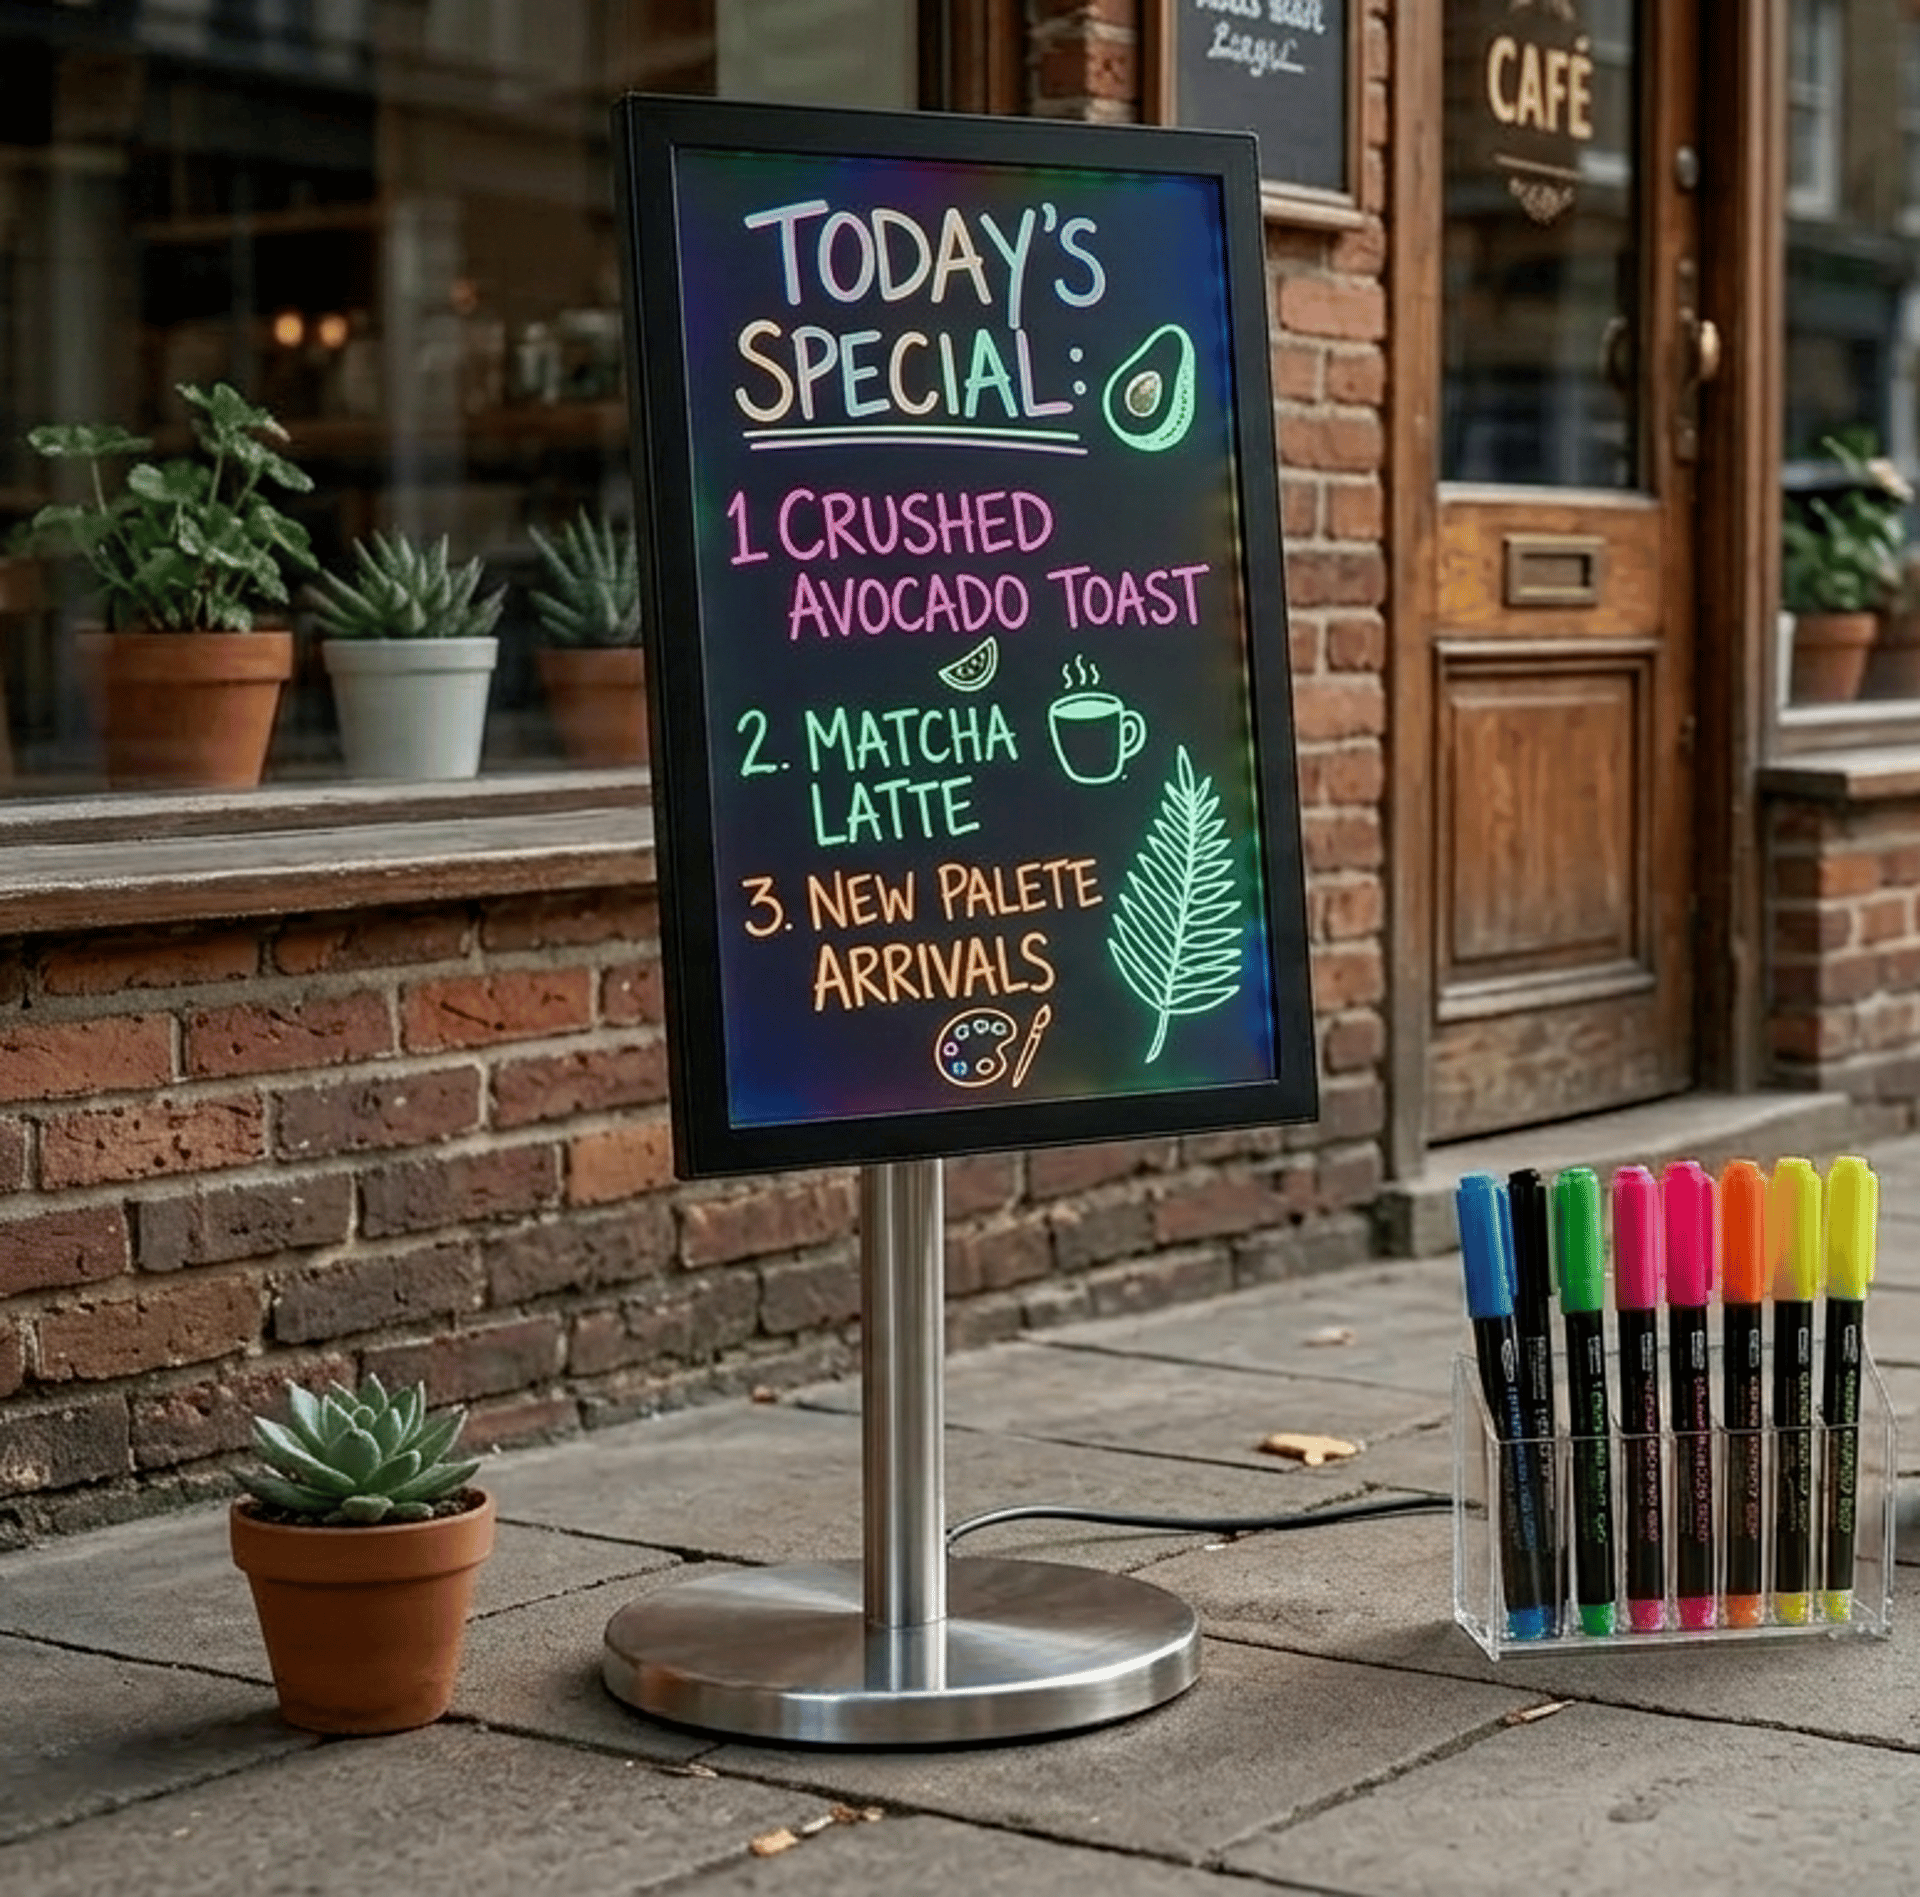 CAFÉ
TODAY'S
SPECIAL:
1 CRUSHED
AVOCADO TOAST
2. MATCHA
LATTE
3. NEW PALETE
ARRIVALS